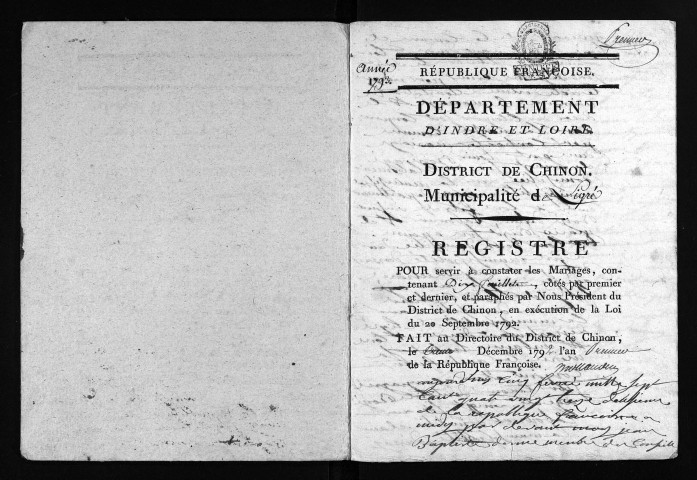 Premier
Année
RÉPUBLIQUE FRANÇOISE.
1792
DÉPARTEMENT
D'INDRE ET LOIRE.
DISTRICT DE CHINON.
Municipalité de Ligré
REGISTRE
POUR servir à constater les Mariages, con-
tenant Dix feuillets, côtés par premier
et dernier, et paraphés par Nous Président du
District de Chinon, en exécution de la Loi
du 20 Septembre 1792.
FAIT au Directoire du District de Chinon,
le Décembre 1792 l'an Premier
de la République Françoise.
cinq mille sept
cent quatre vingt treize deuxieme
de la republique francoise a
midy par devant moy jean
Baptiste membre du Conseil